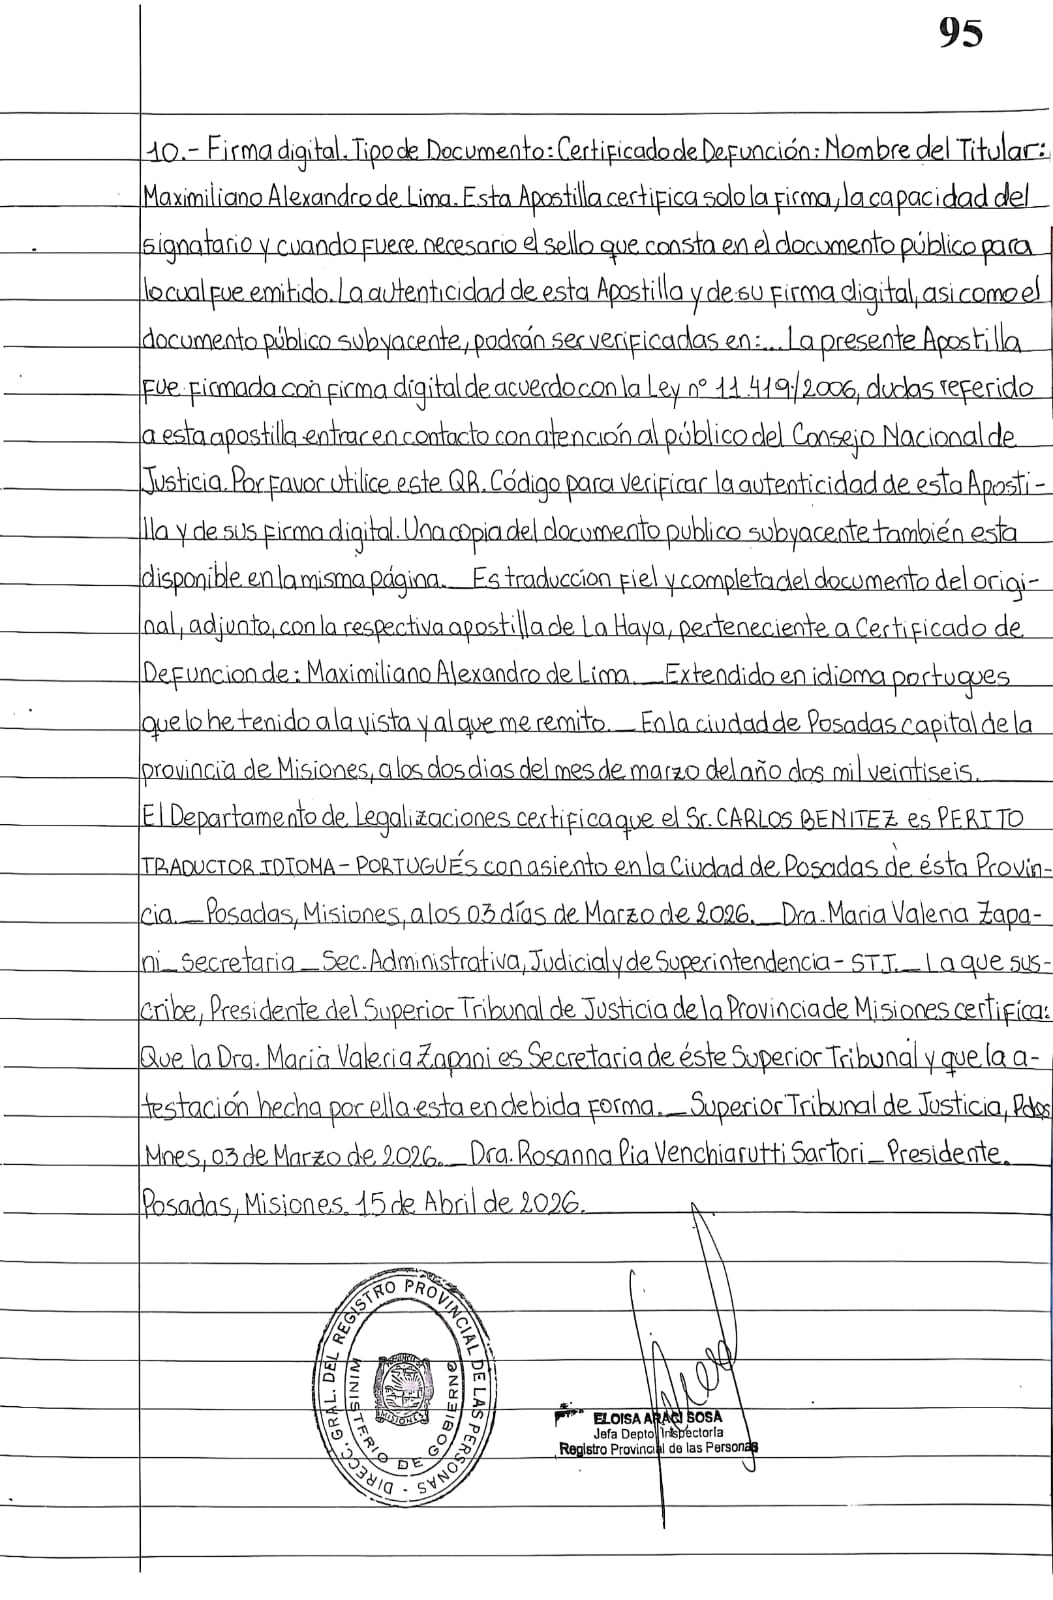 95
10.- Firma digital. Tipo de Documento: Certificado de Defunción: Nombre del Titular:
Maximiliano Alexandro de Lima. Esta Apostilla certifica solo la firma, la capacidad del
signatario y cuando fuere necesario el sello que consta en el documento público para
lo cual fue emitido. La autenticidad de esta Apostilla y de su firma digital, asi como el
documento público subyacente, podrán ser verificadas en:... La presente Apostilla
fue firmada con firma digital de acuerdo con la Ley nº 11.419/2006, dudas referido
a esta apostilla entrar en contacto con atención al público del Consejo Nacional de
Justicia. Por favor utilice este QR. Código para verificar la autenticidad de esta Aposti-
lla y de sus firma digital. Una copia del documento publico subyacente también esta
disponible en la misma página. _ Es traduccion fiel y completa del documento del origi-
nal, adjunto, con la respectiva apostilla de La Haya, perteneciente a Certificado de
Defuncion de: Maximiliano Alexandro de Lima. _ Extendido en idioma portugues
que lo he tenido a la vista y al que me remito. _ En la ciudad de Posadas capital de la
provincia de Misiones, a los dos dias del mes de marzo del año dos mil veintiseis.
El Departamento de Legalizaciones certifica que el Sr. CARLOS BENITEZ es PERITO
TRADUCTOR IDIOMA - PORTUGUÉS con asiento en la Ciudad de Posadas de ésta Provin-
cia. _ Posadas, Misiones, a los 03 días de Marzo de 2026. _ Dra. Maria Valeria Zapa-
ni _ Secretaria _ Sec. Administrativa, Judicial y de Superintendencia - STJ. _ La que sus-
cribe, Presidente del Superior Tribunal de Justicia de la Provincia de Misiones certifica:
Que la Dra. Maria Valeria Zapani es Secretaria de éste Superior Tribunal y que la a-
testación hecha por ella esta en debida forma. _ Superior Tribunal de Justicia, Pdas
Mnes, 03 de Marzo de 2026. _ Dra. Rosanna Pia Venchiarutti Sartori _ Presidente.
Posadas, Misiones. 15 de Abril de 2026.
DIRECC. GRAL. DEL REGISTRO PROVINCIAL DE LAS PERSONAS
MINISTERIO DE GOBIERNO
MISIONES
ELOISA ARACI SOSA
Jefa Depto Inspectoría
Registro Provincial de las Personas